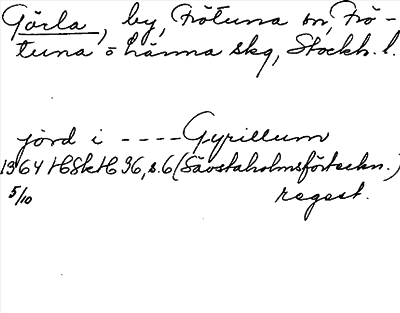 Görla, by, Frötuna sn, Frö-
tuna o Länna skg, Stockh. l.
jord i ---- Gyrillum
1964 HSkH 36, s. 6 (Säostaholmsförteckn.)
5/10 regest.